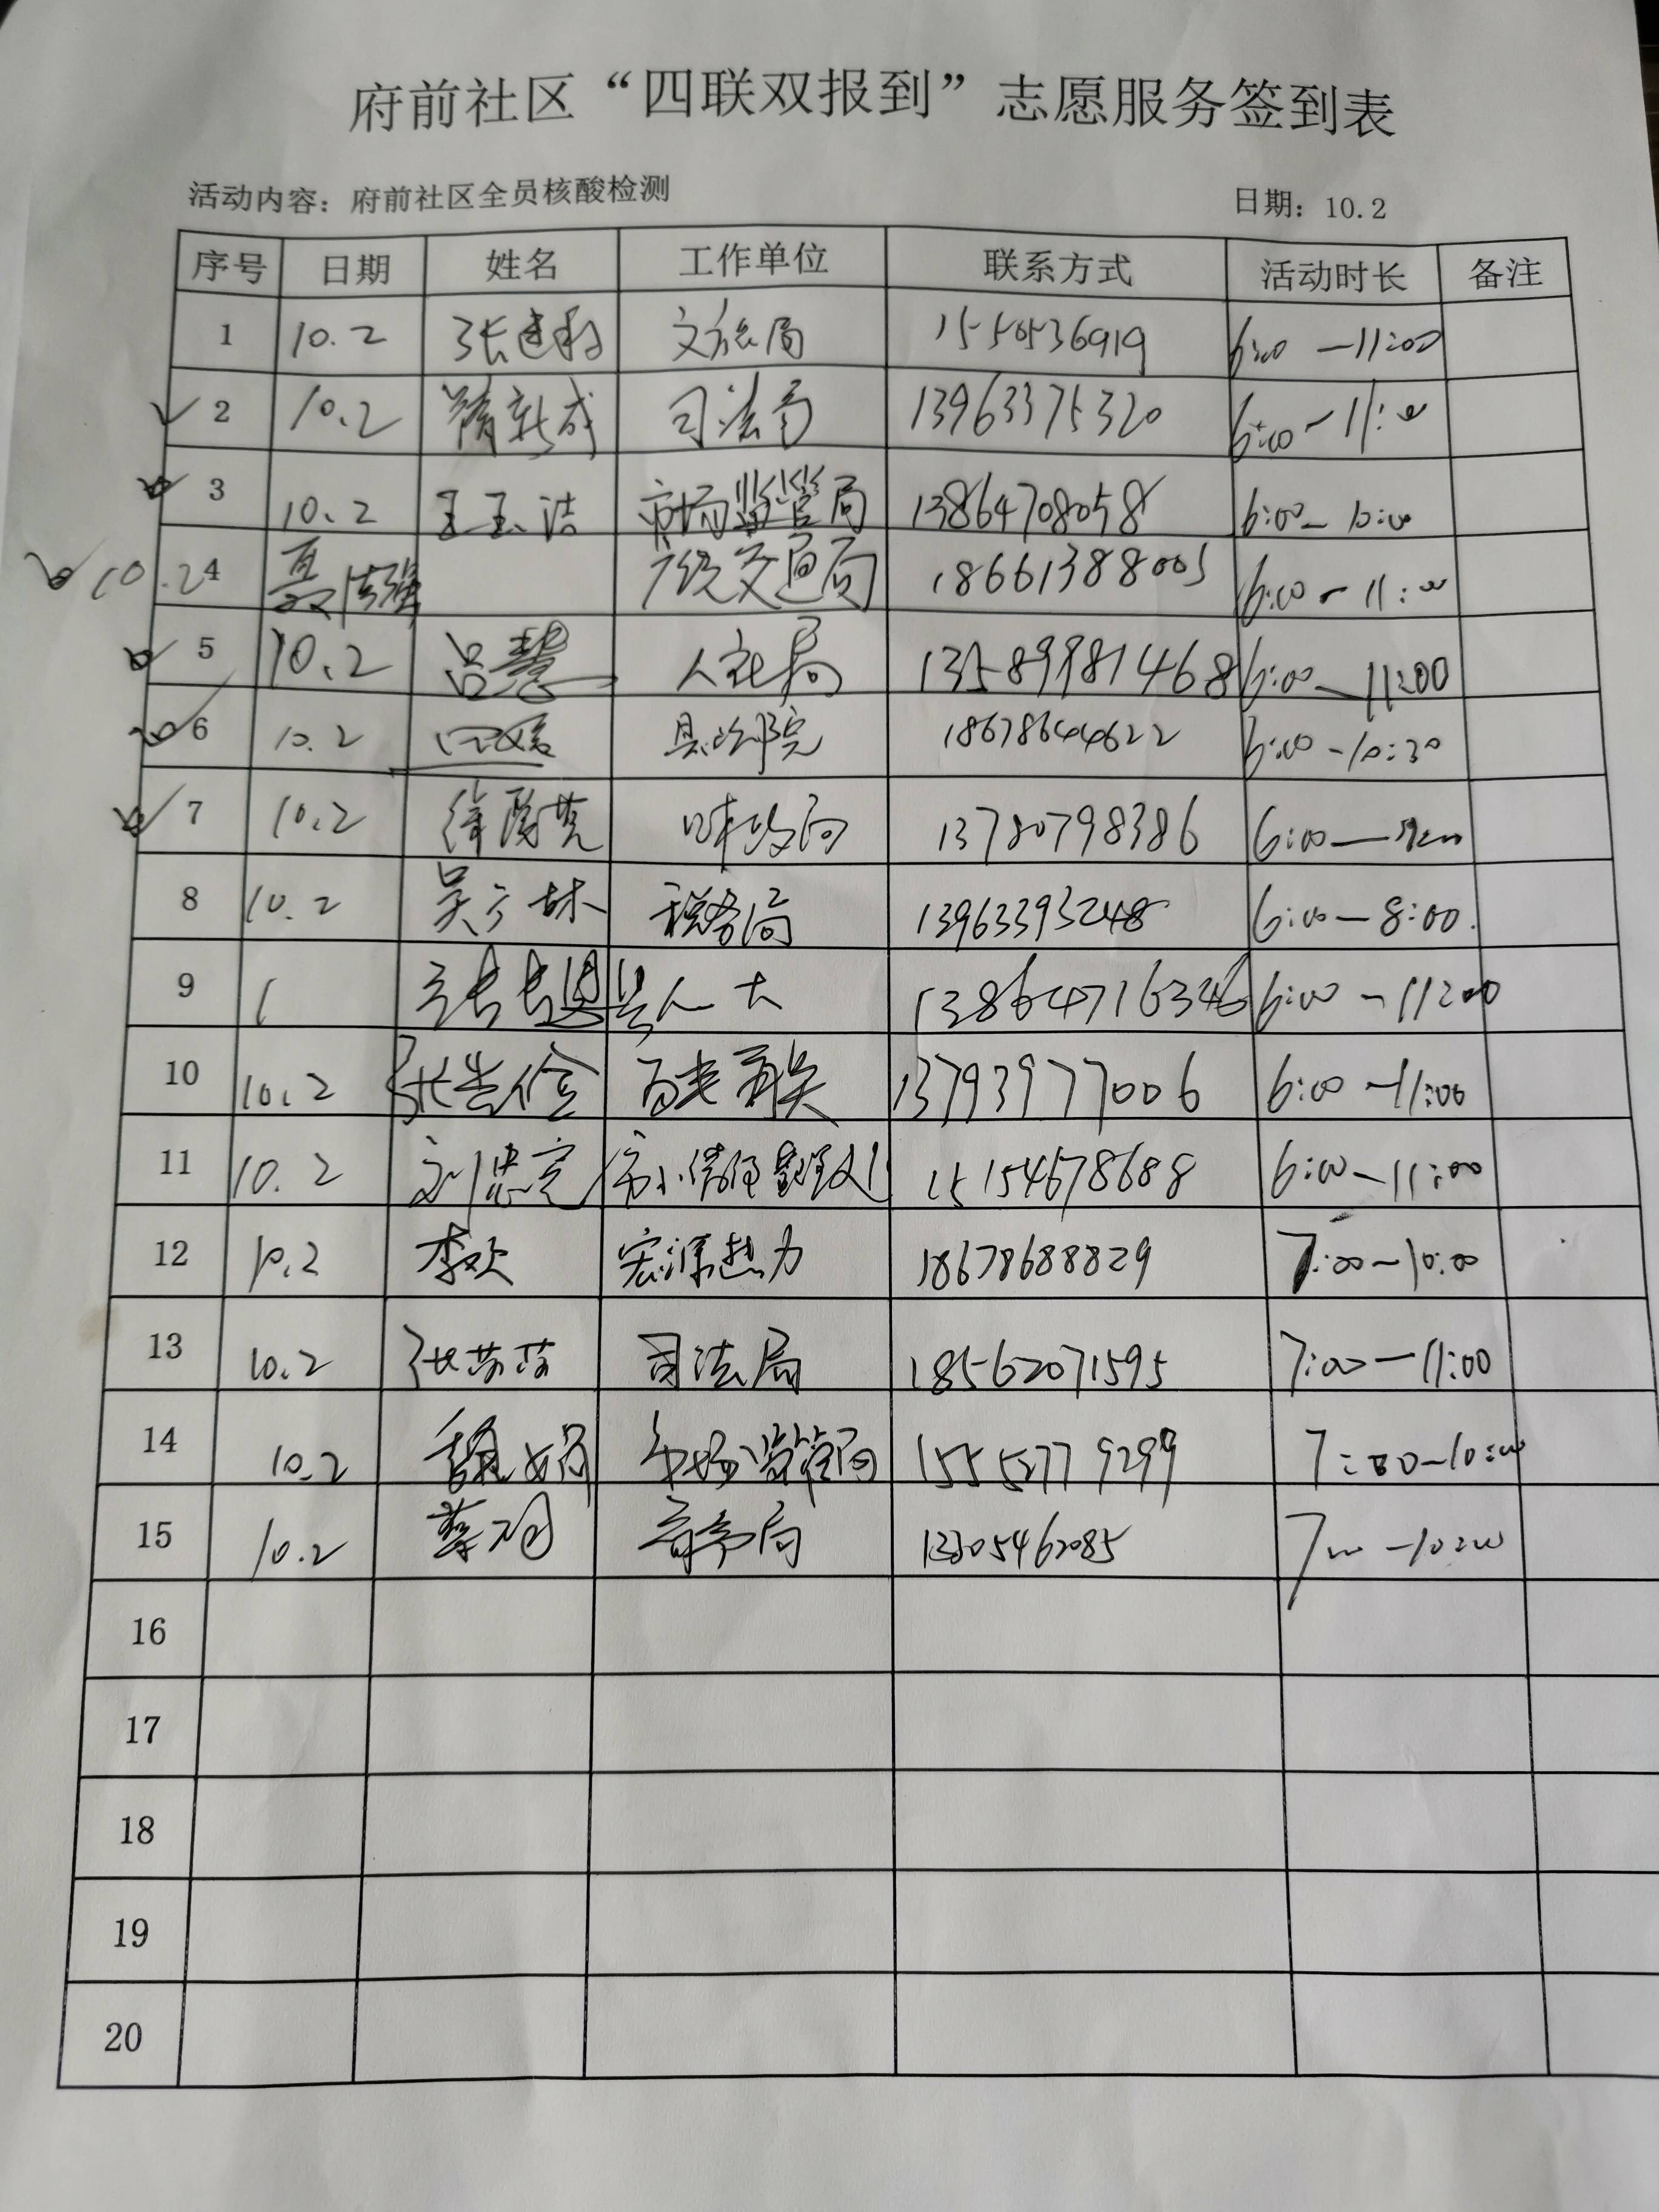 府前社区“四联双报到”志愿服务签到表
活动内容：府前社区全员核酸检测 日期：10.2
序号 日期 姓名 工作单位 联系方式 活动时长 备注
1 10.2 文旅局 15550536919 6:00 —11:00
2 10.2 隋新成 司法局 13963375320 6:00 —11:00
3 10.2 王玉洁 市场监管局 13864708058 6:00— 10:00
10.2 4 聂洪强 交通局 18661388005 6:00 — 11:00
5 10.2 吕慧 人社局 13589981468 6:00—11:00
6 10.2 18678644622 6:00 —10:30
7 10.2 13780798386 6:00—
8 10.2 吴 林 税务局 13963393248 6:00—8:00.
9 县人大 13864716346 6:00 —11:00
10 10.2 13793977006 6:00 —11:00
11 10.2 15154678688 6:00—11:00
12 10.2 李欢 宏源热力 18678688829 7:00—10:00
13 10.2 张莎莎 司法局 18562071595 7:00—11:00
14 10.2 魏娟 市场监管局 15552779299 7:00—10:00
15 10.2 13305462085 7:00 —10:00
16
17
18
19
20